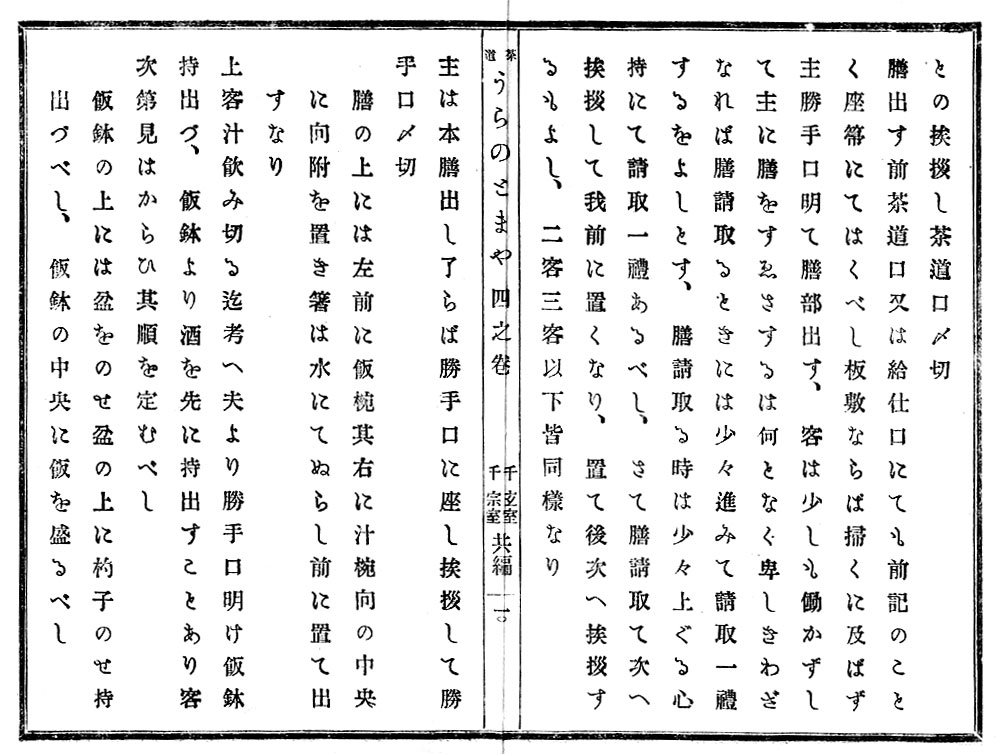 との挨拶し茶道口〆切
膳出す前茶道口又は給仕口にても前記のこと
く座箒にてはくべし板敷ならば掃くに及ばず
主勝手口明て膳部出す、客は少しも働かずし
て主に膳をすゑさするは何となく卑しきわざ
なれば膳請取るときには少々進みて請取一禮
するをよしとす、膳請取る時は少々上ぐる心
持にて請取一禮あるべし、さて膳請取て次へ
挨拶して我前に置くなり、置て後次へ挨拶す
るもよし、二客三客以下皆同樣なり
茶道 うらのとまや 四之卷 千玄室 千宗室 共編 一〇
主は本膳出し了らば勝手口に座し挨拶して勝
手口〆切
膳の上には左前に飯椀其右に汁椀向の中央
に向附を置き箸は水にてぬらし前に置て出
すなり
上客汁飮み切る迄考へ夫より勝手口明け飯鉢
持出づ、飯鉢より酒を先に持出すことあり客
次第見はからひ其順を定むべし
飯鉢の上には盆をのせ盆の上に杓子のせ持
出づべし、飯鉢の中央に飯を盛るべし